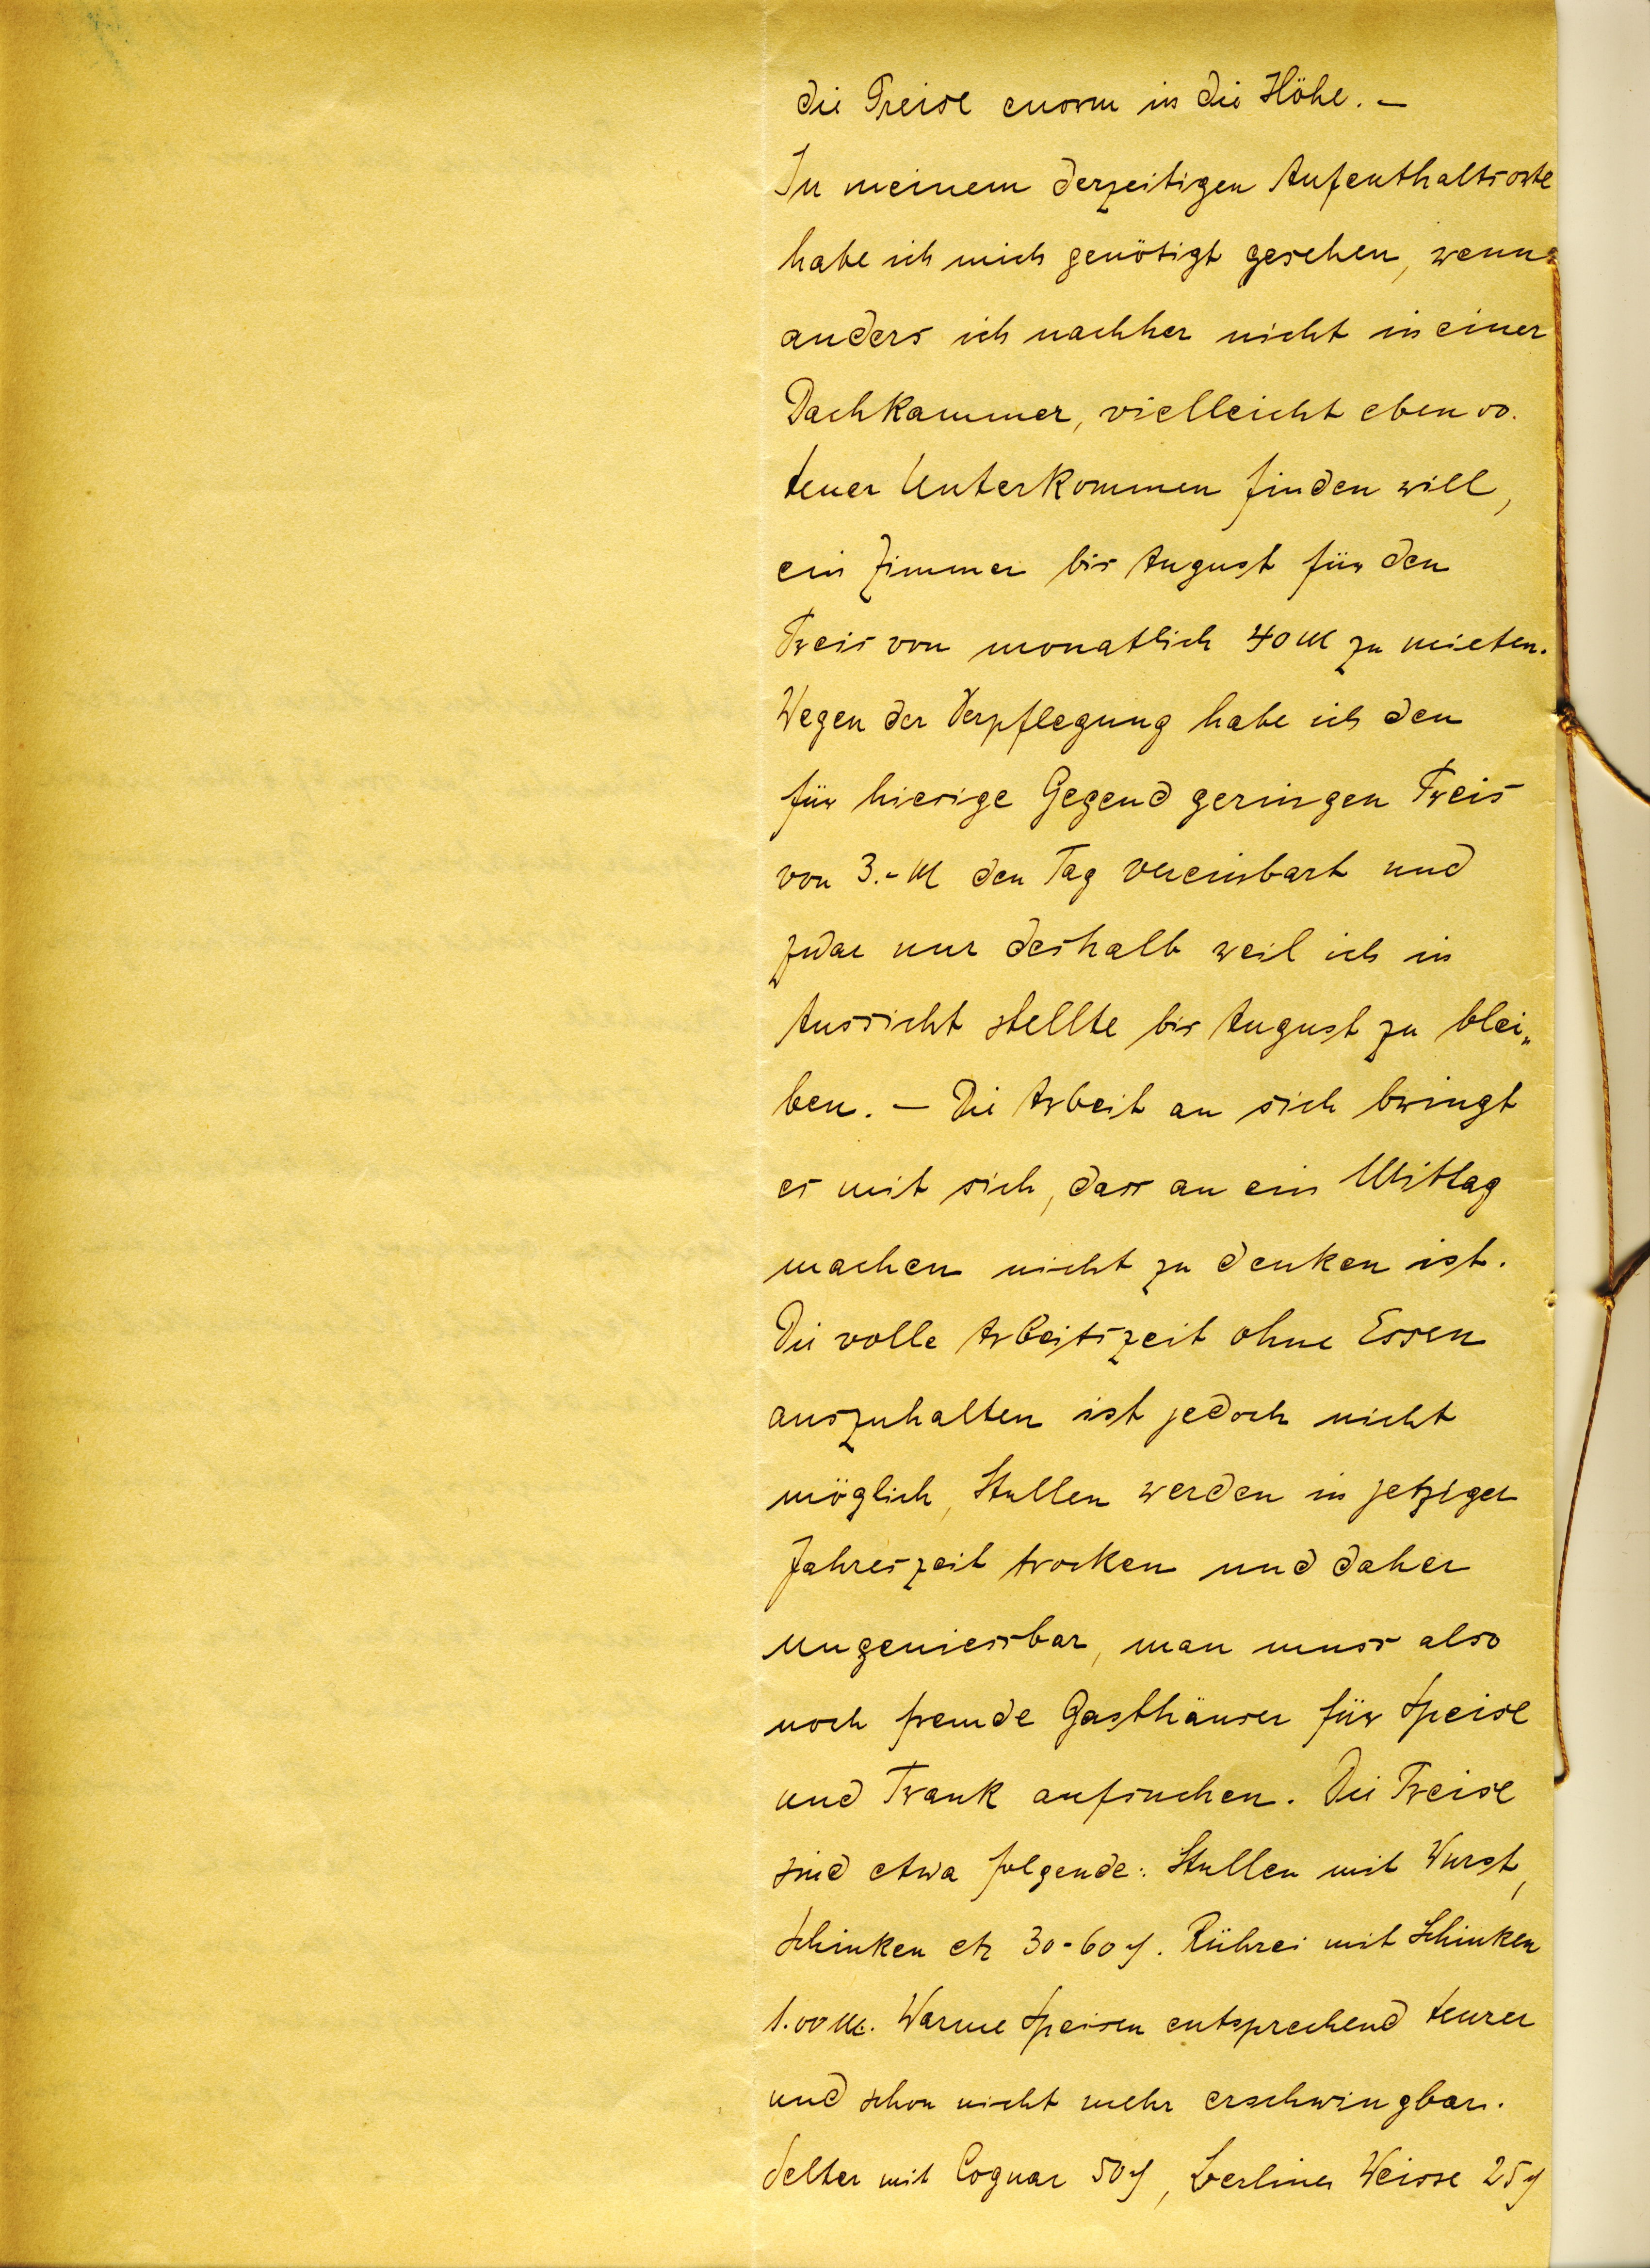 die Preise enorm in die Höhe. –
In meinem derzeitigen Aufenthaltsorte
habe ich mich genötigt gesehen, wenn
anders ich nachher nicht in einer
Dachkammer, vielleicht ebenso
teuer Unterkommen finden will,
ein Zimmer bis August für den
Preis von monatlich 40 M zu mieten.
Wegen der Verpflegung habe ich den
für hiesige Gegend geringen Preis
von 3.- M den Tag vereinbart und
zwar nur deshalb weil ich in
Aussicht stellte bis August zu blei„
ben. – Die Arbeit an sich bringt
es mit sich, dass an ein Mittag
machen nicht zu denken ist.
Die volle Arbeitszeit ohne Essen
auszuhalten ist jedoch nicht
möglich, Stullen werden in jetziger
Jahreszeit trocken und daher
ungeniessbar, man muss also
noch fremde Gasthäuser für Speise
und Trank aufsuchen. Die Preise
sind etwa folgende: Stullen mit Wurst,
Schinken etz 30-60 ₰. Rührei mit Schinken
1.00 M. Warme Speisen entsprechend teurer
und schon nicht mehr erschwingbar.
Selter mit Cognac 50 ₰, Berliner Weisse 25 ₰